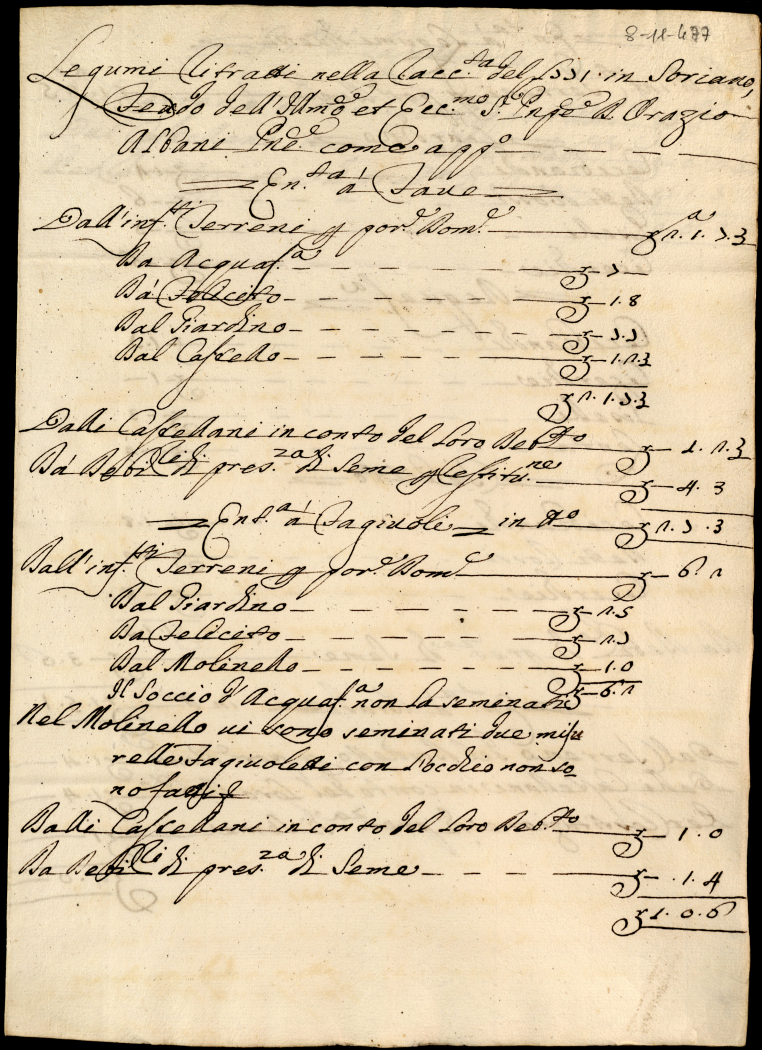 8-11-477
Legumi ritratti nella Racc.ta del 1771. in Soriano,
Feudo dell'Ill.mo et Ecc.mo S.r Pnpe D. Orazio
Albani Pne. come app.o
En.ta á Fave
Dall'inf.tti Terreni p por.e Dom.e
Da Acquaf.a 7
Dá Feliceto 1.8
Dal Giardino 7.7
Dal Castello
Dalli Castellani in conto del loro Deb.to
Dá Debi.ti di pres.za di Seme p restitu.ne 4.3
Ent.a á Fagiuoli in d.o
Dall'inf.tti Terreni p por.e Dom.e
Dal Giardino
Da Feliceto
Dal Molinello 1.0
Il Soccio d'Acquaf.a non la seminati
Nel Molinello vi sono seminati due misu
relle Fagiuoletti con l'occhio non so
no fatti
Dalli Castellani in conto del loro Deb.to 1.0
Da Debi.ti di pres.za di Seme .1.4
1.0.6